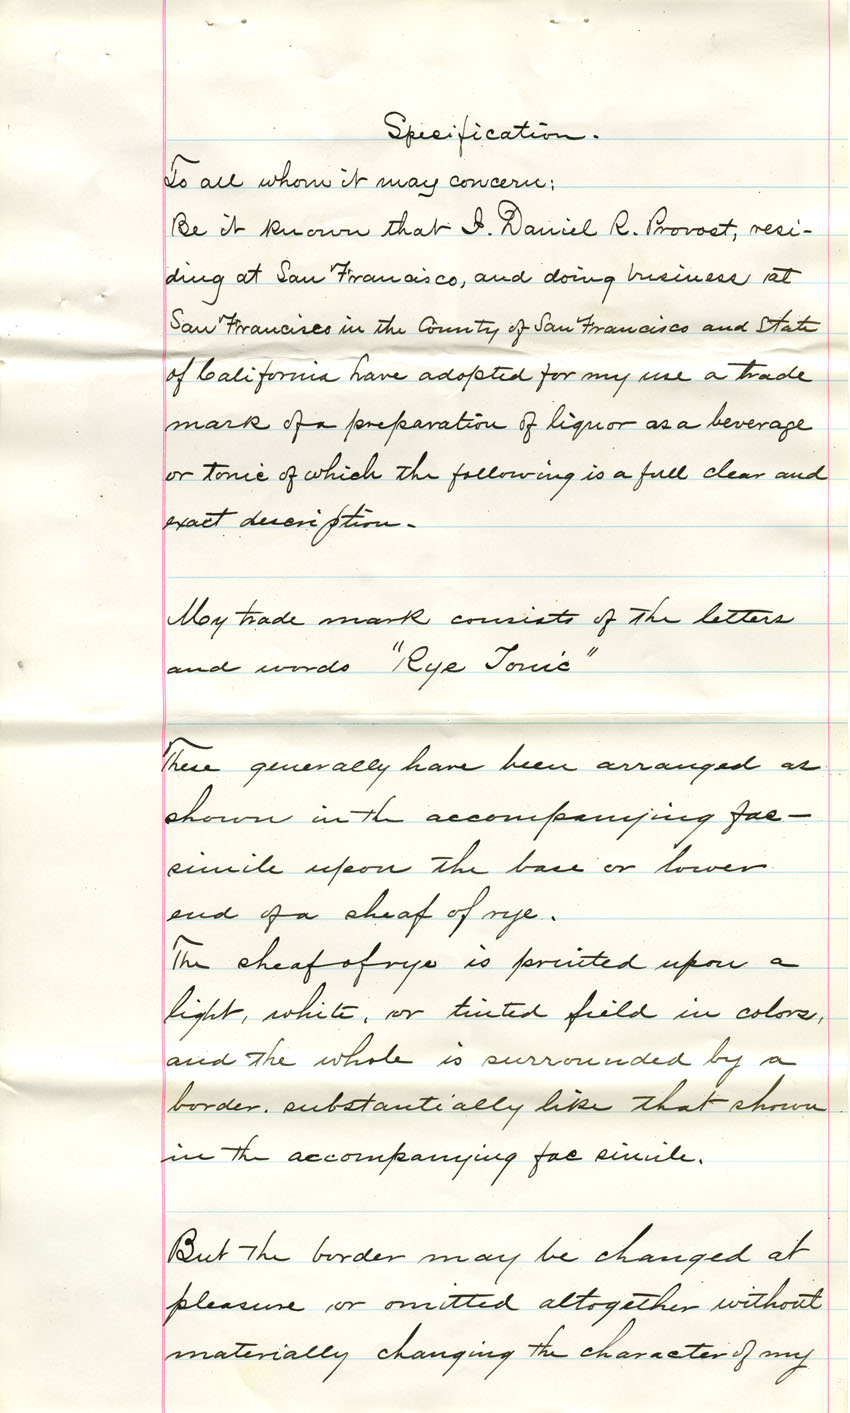 Specification.
To all whom it may concern;
Be it known that I. Daniel R. Provost, resi-
ding at San Francisco, and doing business at
San Francisco in the County of San Francisco and State
of California have adopted for my use a trade
mark of a preparation of liquor as a beverage
or tonic of which the following is a full clear and
exact description.
My trade mark consists of the letters
and words "Rye Tonic"
These generally have been arranged as
shown in the accompanying fac-
simile upon the base or lower
end of a sheaf of rye.
The sheaf of rye is printed upon a
light, white, or tinted field in colors,
and the whole is surrounded by a
border. substantially like that shown
in the accompanying fac simile.
But the border may be changed at
pleasure or omitted altogether without
materially changing the character of my